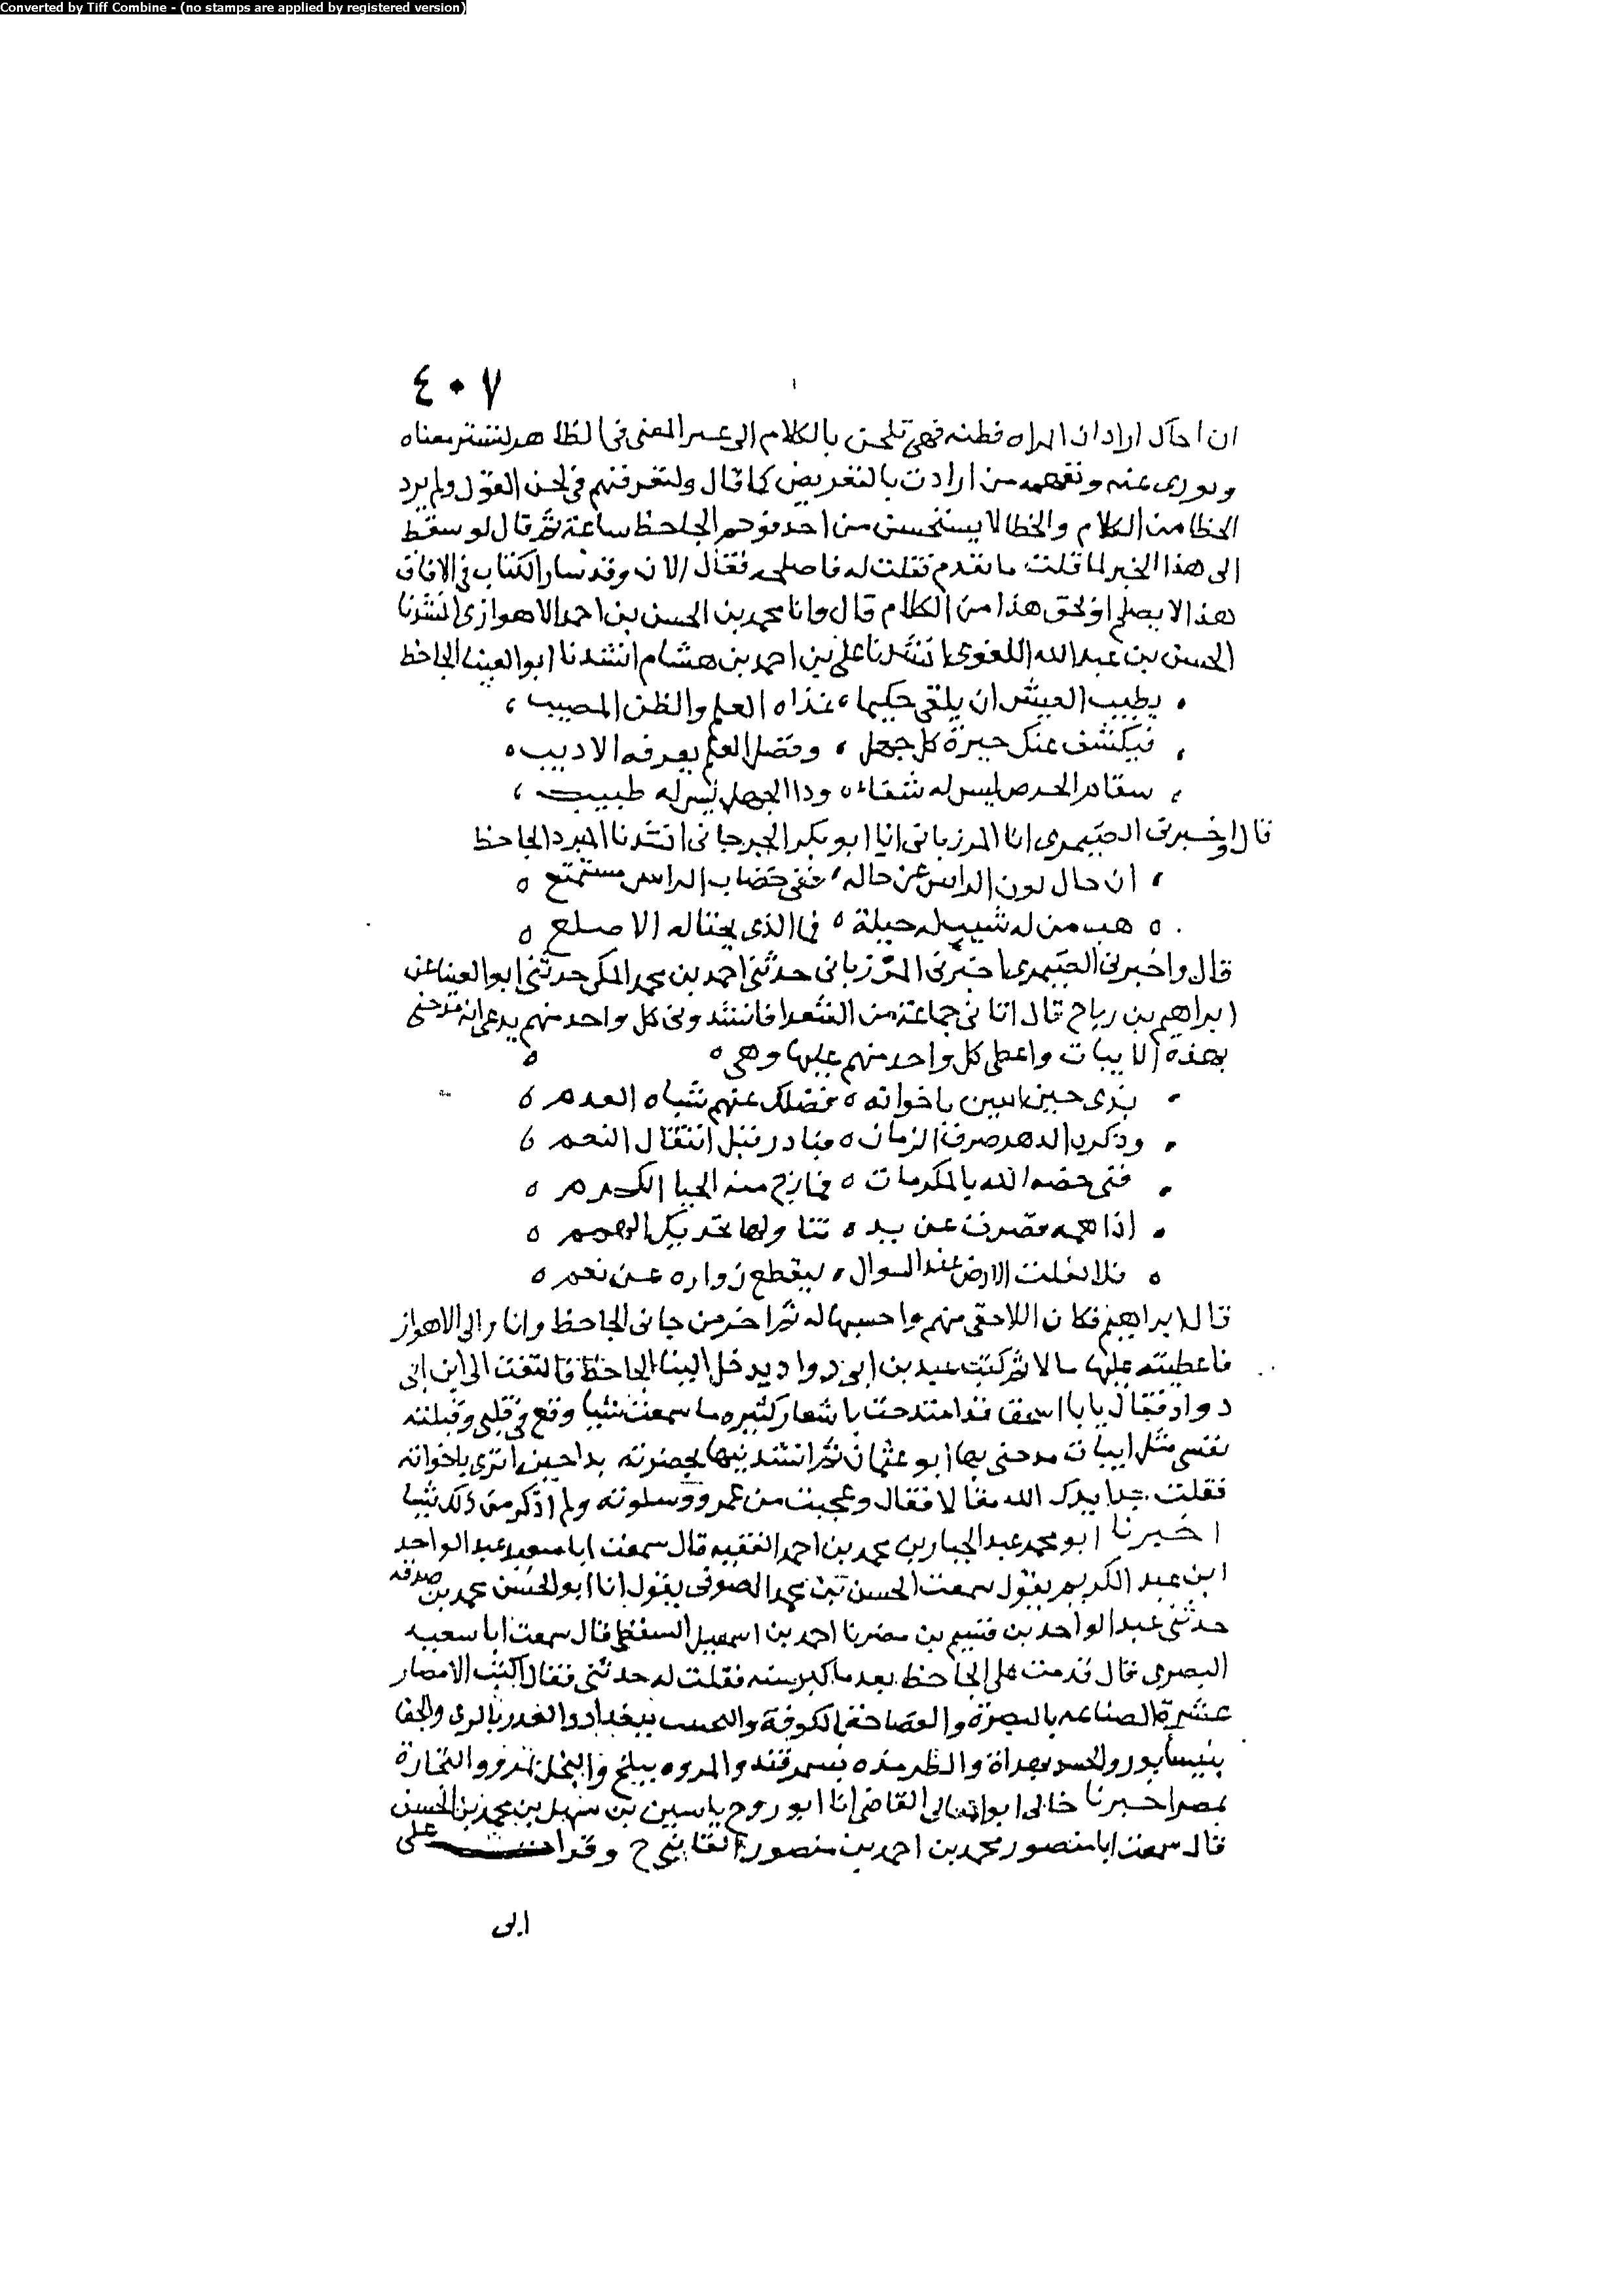 Converted by Tiff Combine - (no stamps are applied by registered version)
٤٠٧
ان اخاك اراد ان المراه فطنه فهي تلحن بالكلام الى غير المعنى في الظاهر لتستر معناه
وتورى عنه وتفهمه من ارادت بالتعريض كما قال ولتعرفنهم في لحن القول ولم يرد
الخطا من الكلام والخطا لا يستحسن من احد فوجم الجاحظ ساعة ثم قال لو سقط
الى هذا الخبر لما قلت ما تقدم فقلت له فاصلحه فقال الان وقد سار الكتاب في الافاق
هذا لا يصلح او نحو هذا من الكلام قال وانا محمد بن الحسن بن احمد الاهوازى انشدنا
الحسن بن عبد الله اللغوى انشدنا على بن احمد بن هشام انشدنا ابو العينا الجاحظ
يطيب العيش ان يلقى حكيما غذاه العلم والظن المصيب
فيكشف عنك حيرة كل جهل وفضل العلم يعرفه الاديب
سقام الحرص ليس له شفاء ودا الجهل ليس له طبيب
قال واخبرنى الصيمرى انا المرزبانى انا ابو بكر الجرجانى انشدنا المبرد الجاحظ
ان حال لون الراس عن حاله ففى خضاب الراس مستمتع
هب من له شيب له حيلة فما الذى يحتاله الاصلع
قال واخبرنى الصيمرى اخبرنى المرزبانى حدثنى احمد بن محمد المكى حدثنى ابو العينا عن
ابراهيم بن رباح قال اتانى جماعة من الشعرا فانشدونى كل واحد منهم يدعى انه مدحنى
بهذه الابيات واعطى كل واحد منهم عليها وهى
بدى حين اثرى باخوانه ففضلك عنهم شباه العدم
وذكره الدهر صرف الزمان فبادر قبل انتقال النعم
فتى خصه الله بالمكرمات فمازج منه الحيا الكرم
اذا همه قصرت عن يد تناولها بحد يكل الهمم
ولا ينكت الارض عند السوال ليقطع زواره عن نعم
قال ابراهيم فكان اللاحقى منهم واحسبها له ثم اخر من جانى الجاحظ وانا والى الاهواز
فاعطيته عليها مالا ثم كنت عند بن ابى دواد يدخل الينا الجاحظ فالتفت الى ابن ابى
دواد فقال يابا اسحق قد امتدحت باشعار كثيره ما سمعت شيا وقع في قلبى وقبلته
نفسى مثل ابيات مدحنى بها ابو عثمان ثم انشدنيها بحضرته بدا حين اثرى باخوانه
فقلت يدك الله مقالا فقال وعجبت من عمرو وسلوته ولم اذكر من ذلك شيا
اخبرنا ابو محمد عبد الجبار بن محمد بن احمد الفقيه قال سمعت ابا سعيد عبد الواحد
ابن عبد الكريم يقول سمعت الحسن بن محمد الصوفى يقول انا ابو الحسن محمد بن صدقه
حدثنى عبد الواحد بن قتيم بن مضر نا احمد بن اسمعيل السقطى قال سمعت ابا سعيد
البصرى قال قدمت على الجاحظ بعد ما كبر سنه فقلت له حدثنى فقال اكتب الامصار
عشرة الصناعه بالبصرة والفصاحة بالكوفة والتحسب ببغداد والغدر بالرى والجفا
بنيسابور والحسد بهراة والطرمذه بسمرقند والمروه ببلخ والبخل بمرو والتجارة
بمصر اخبرنا خالى ابو المعالى القاضى انا ابو روح ياسين بن سهل بن محمد بن الحسن
قال سمعت ابا منصور محمد بن احمد بن منصور القاينى ح وقرات على
ابى